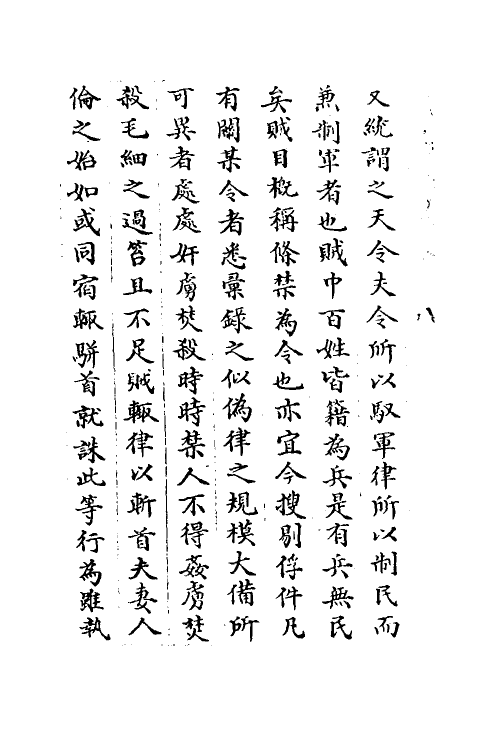 又統謂之天令夫令所以馭軍律所以制民而
兼制軍者也賊中百姓皆籍為兵是有兵無民
矣賊目槪稱條禁為令也亦宜今搜剔俘件凡
有關某令者悉彙錄之似偽律之規模大備所
可異者處處奸虜焚殺時時禁人不得姦虜焚
殺毛細之過笞且不足賊輒律以斬首夫妻人
倫之始如或同宿輒駢首就誅此等行為雖執